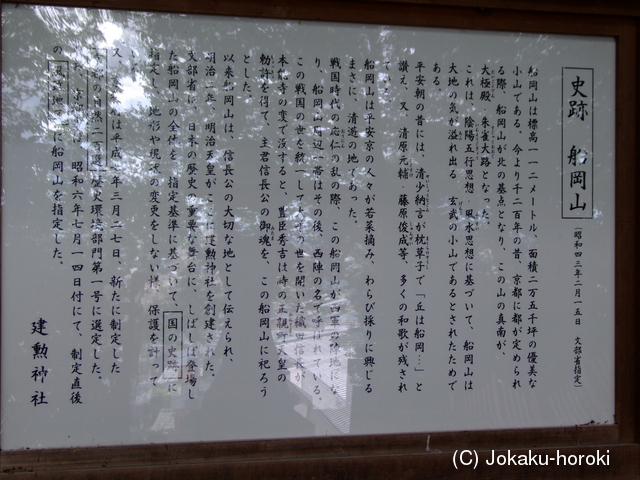 史跡 船岡山
（昭和四三年二月一五日 文部省指定）
船岡山は標高一一二メートル、面積二万五千坪の優美な
小山である。今より千二百年の昔、京都に都が定められ
る際、船岡山が北の基点となり、この山の真南が、
大極殿、朱雀大路となった。
これは、陰陽五行思想、風水思想に基づいて、船岡山は
大地の気が溢れ出る、玄武の小山であるとされたためで
ある。
平安朝の昔には、清少納言が枕草子で「丘は船岡…」と
讃え、又、清原元輔・藤原俊成等、多くの和歌が残され
ている。
船岡山は平安京の人々が若菜摘み、わらび採りに興じる
まさに、清遊の地であった。
戦国時代の応仁の乱の際、この船岡山が西軍の陣地にな
り、船岡山周辺一帯はその後、西陣の名で呼ばれている。
この戦国の世を統一して の世を開いた織田信長が
本能寺の変で没すると、豊臣秀吉は時の正親町天皇の
勅許を得て、主君信長公の御魂を、この船岡山に祀ろう
とした。
以来船岡山は、信長公の大切な地として伝えられ、
明治二年、明治天皇がここに建勲神社を創建された。
文部省は、日本の歴史の重要な舞台に、しばしば登場し
た船岡山の全体を、指定基準に基づいて、国の史跡に
指定し、地形や現状の変更をしない様、保護を計って
いる。
又、京都 は平成 年三月二七日、新たに制定した
京都の自然二百選 歴史環境部門第一号に選定した。
京都市 昭和六年七月一四日付にて、制定直後
の 風致地区 に船岡山を指定した。
建勲神社
(C) Jokaku-horoki